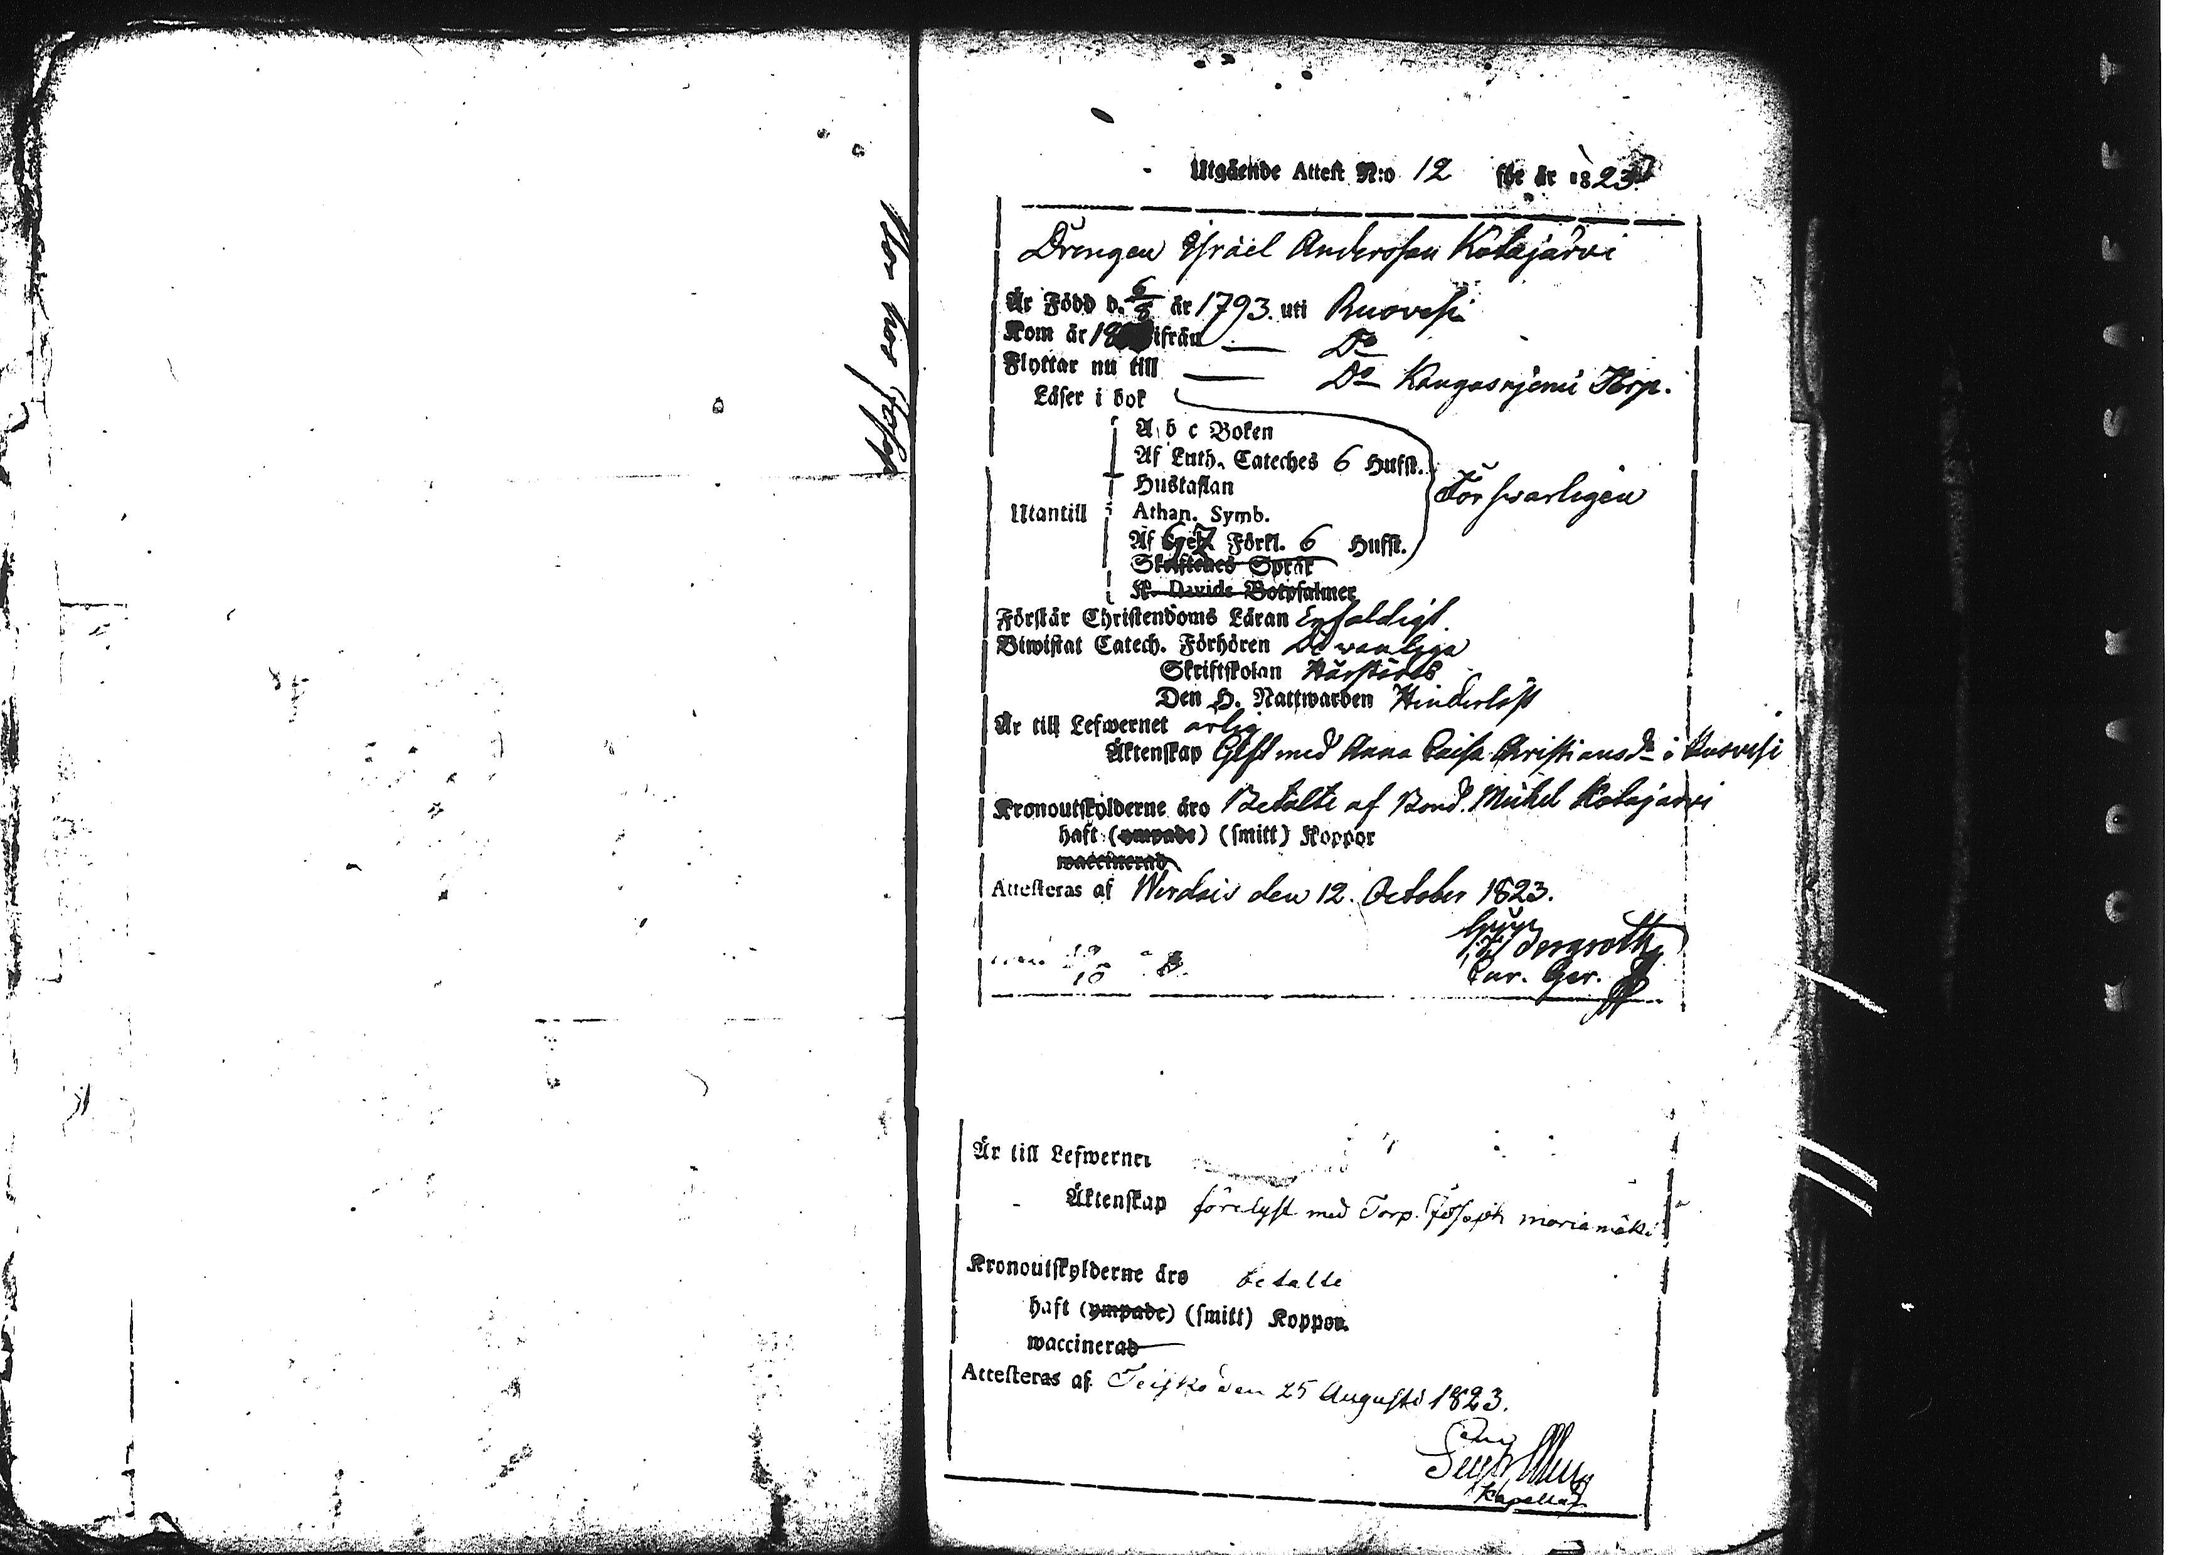 Utgående Attest N:o 12 för år 1823
Drengen Israel Andersson Kotajärvi
Är Född d. 6/8 år 1793. uti Ruovesi
Kom år 18 ifrån — Do
Flyttar nu till — Do Kangasnjemi Torp.
Läser i bok
A b c Boken
Af Luth. Cateches 6 Hufst.
Hustaflan
Försvarligen
Utantill
Athan. Symb.
Af Förkl. 6 Hufst.
Skriftenes Språk
K. Davids Botpsalmer
Förstår Christendoms Läran Enfaldigt.
Biwistat Catech. Förhören De vanliga
Skriftskolan
Den H. Nattwarden Hinderlöst
Är till Lefwernet ärlig
Äktenskap Gift med Anna Caisa Christiansdr i Ruovesi
Kronoutskylderne äro Betalte af Bond. Michel Kotajärvi
haft (ympade) (smitt) Koppor
waccinerad
Attesteras af Wirdois den 12. October 1823.
Är till Lefwernet
Äktenskap förelyst med Torp. Joseph mariamäki
Kronoutskylderne äro betalte
haft (ympade) (smitt) Koppor.
waccinerad
Attesteras af Teisko den 25 Augusti 1823.
Kapellan